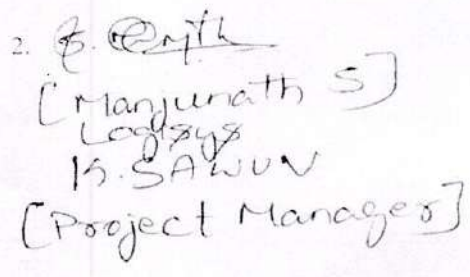 2.
[Manjunath S]
Logisys
K. SAWUN
[Project Manager]